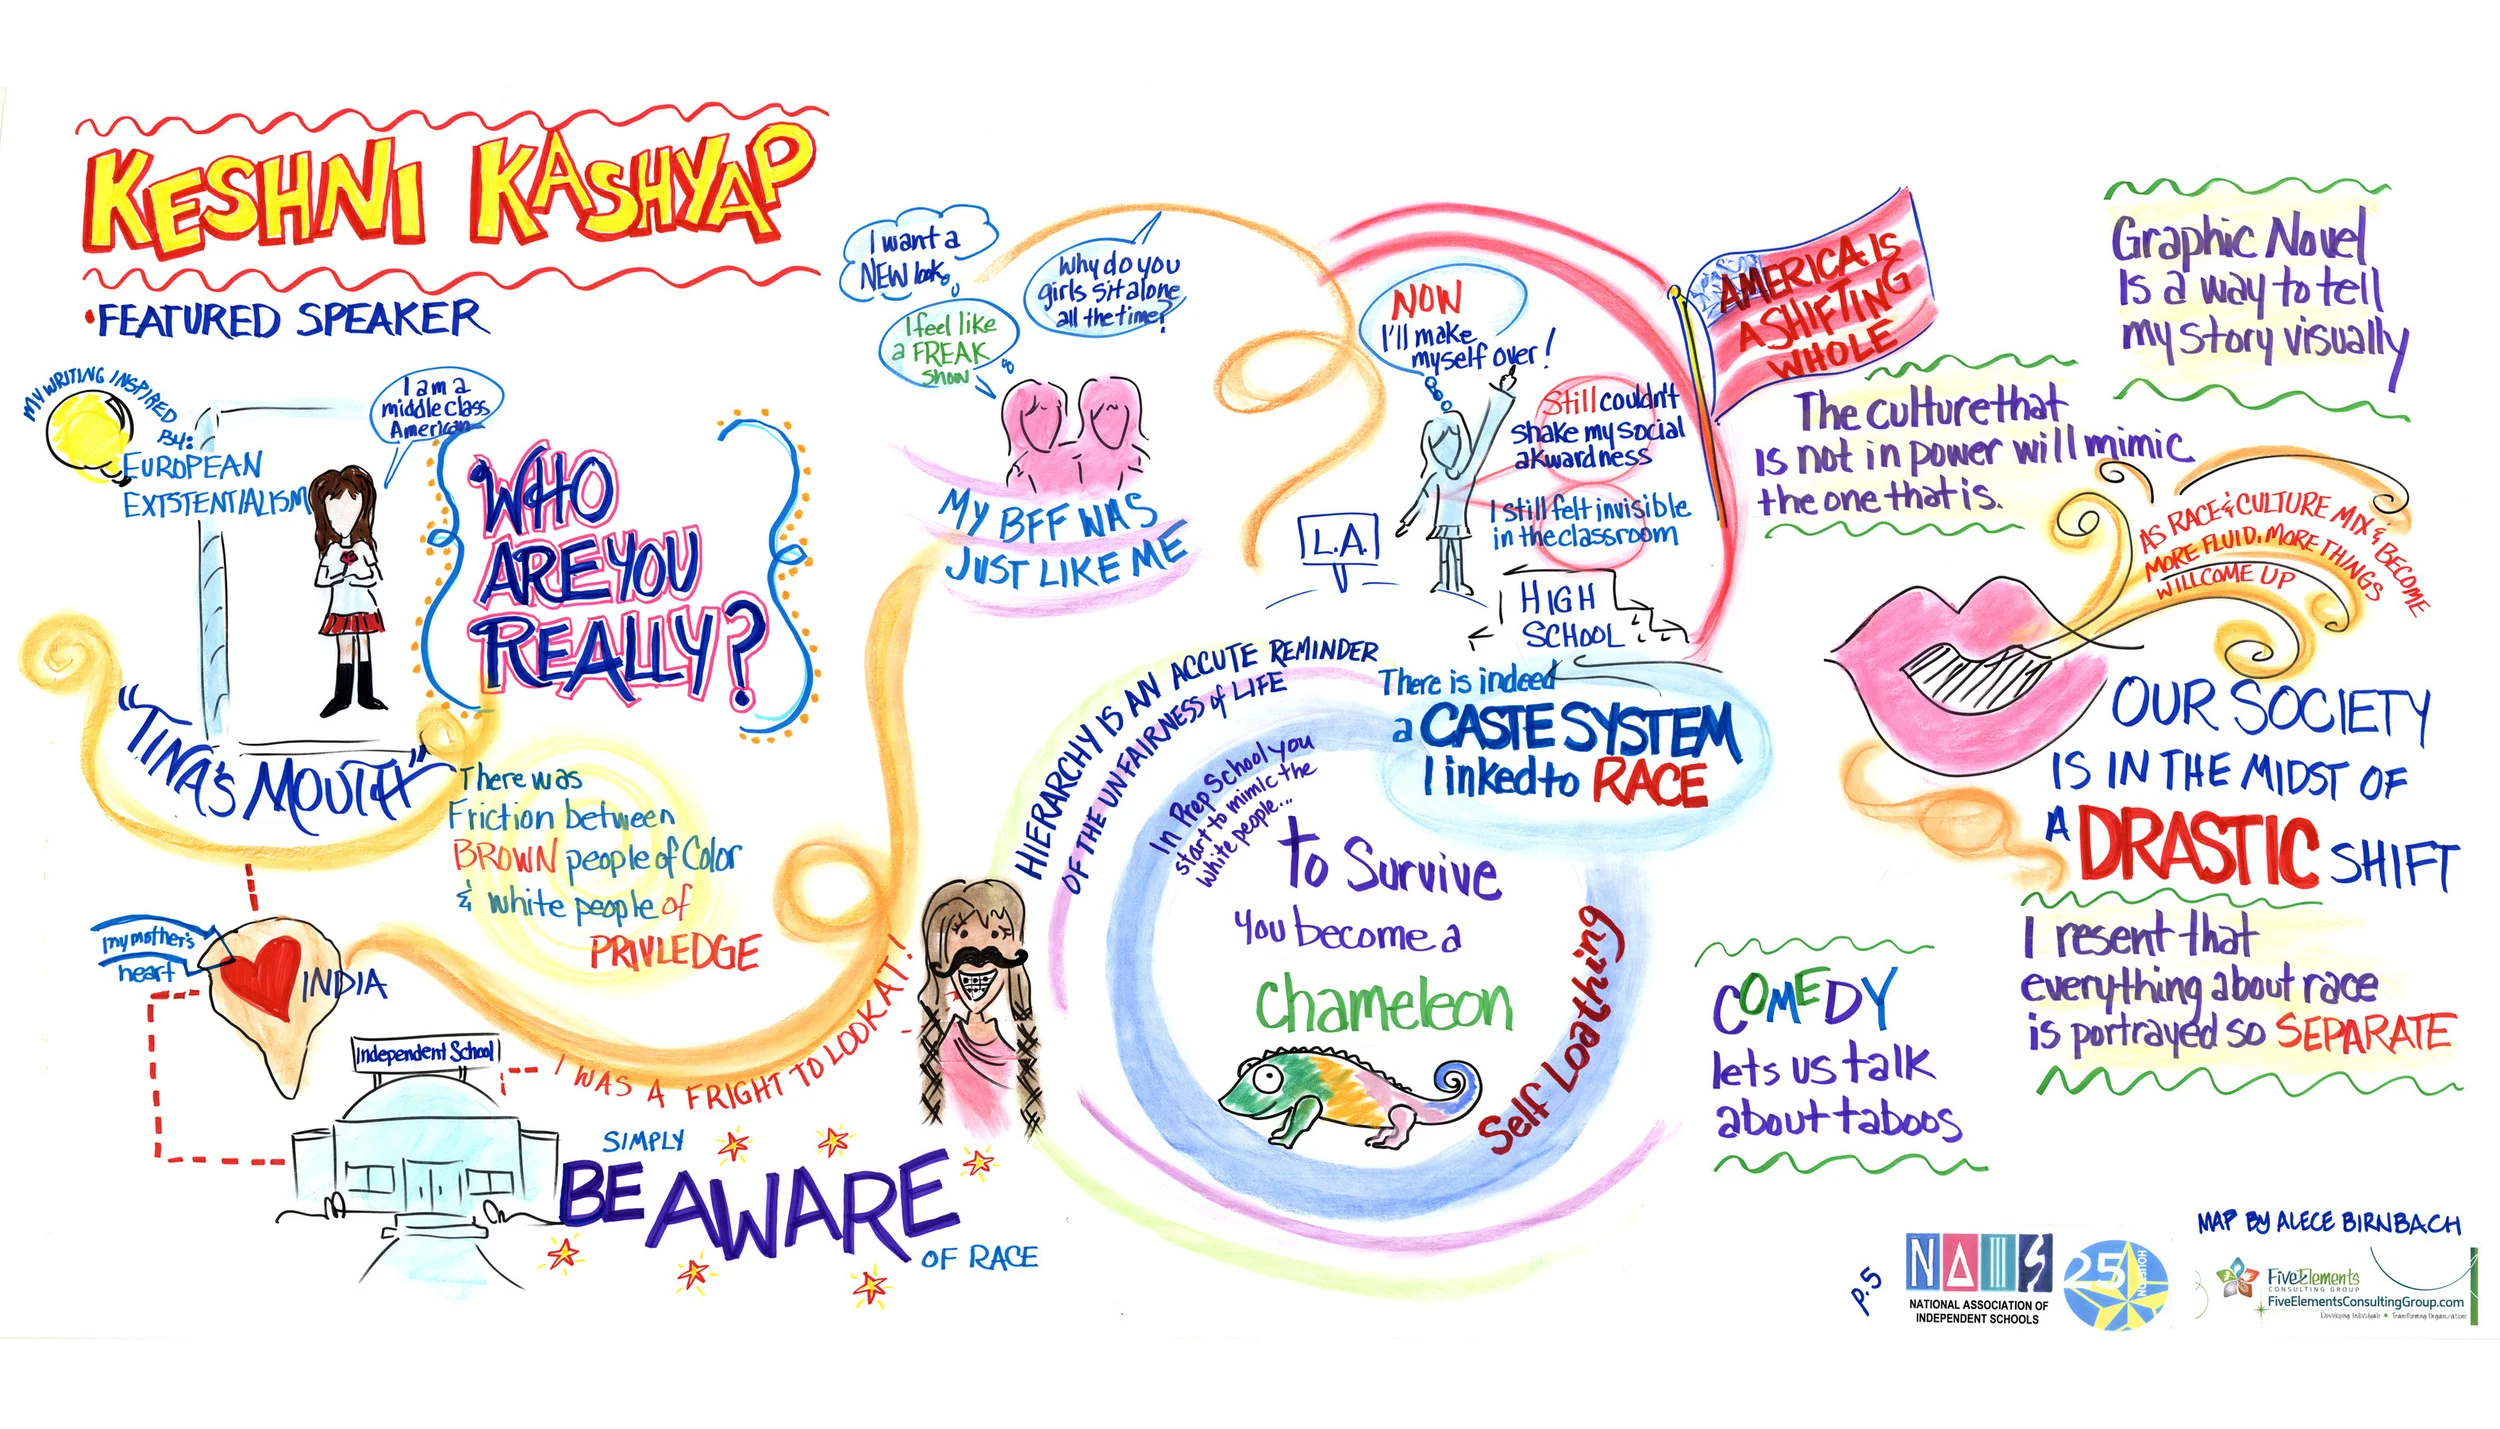 KESHNI KASHYAP
•FEATURED SPEAKER
MY WRITING INSPIRED
BY:
EUROPEAN
EXTSTENTIALISM
I am a
middle class
American
WHO
ARE YOU
REALLY?
"TINA'S MOUTH"
There was
Friction between
BROWN people of Color
& white people of
PRIVLEDGE
my mother's
heart
INDIA
Independent School
I WAS A FRIGHT TO LOOK AT!
SIMPLY
BE AWARE
OF RACE
I want a
NEW look
I feel like
a FREAK
show
Why do you
girls sit alone
all the time?
MY BFF WAS
JUST LIKE ME
L.A.
NOW
I'll make
myself over!
Still couldn't
shake my social
akwardness
I still felt invisible
in the classroom
HIGH
SCHOOL
AMERICA IS
A SHIFTING
WHOLE
HIERARCHY IS AN ACCUTE REMINDER
OF THE UNFAIRNESS of LIFE
There is indeed
a CASTE SYSTEM
linked to RACE
In Prep School you
start to mimic the
white people...
to Survive
you become a
chameleon
Self Loathing
Graphic Novel
Is a way to tell
my story visually
The culture that
is not in power will mimic
the one that is.
AS RACE & CULTURE MIX & BECOME
MORE FLUID. MORE THINGS
WILL COME UP
OUR SOCIETY
IS IN THE MIDST OF
A DRASTIC SHIFT
I resent that
everything about race
is portrayed so SEPARATE
COMEDY
lets us talk
about taboos
MAP BY ALECE BIRNBACH
p.5
NAIS
NATIONAL ASSOCIATION OF
INDEPENDENT SCHOOLS
25
HOUSTON
FiveElements
CONSULTING GROUP
FiveElementsConsultingGroup.com
Developing Individuals • Transforming Organizations